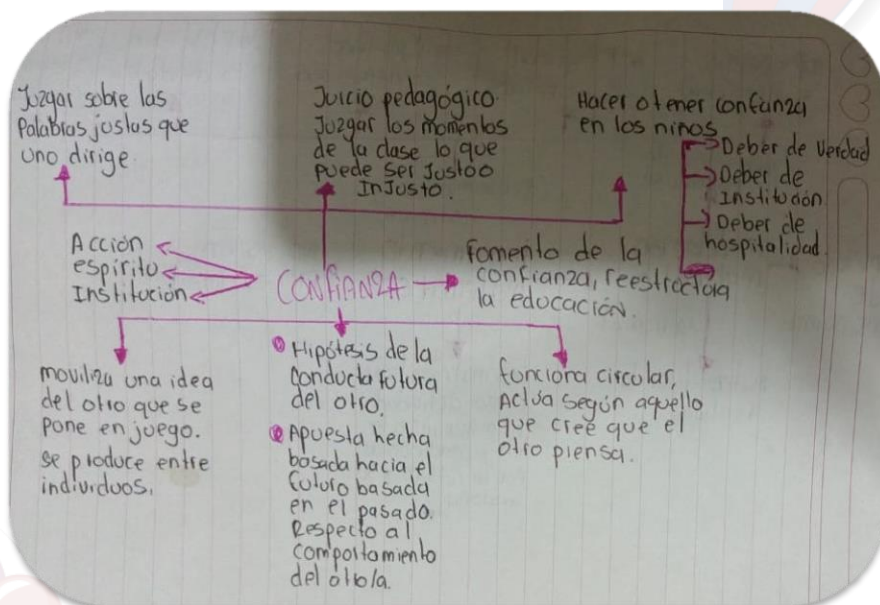 Juzgar sobre las
Palabras justas que
uno dirige.
Juicio pedagógico.
Juzgar los momentos
de la clase lo que
puede ser Justo o
InJusto.
Hacer o tener confianza
en los niños
Deber de Verdad
Deber de
Institución
Deber de
hospitalidad.
Acción
espíritu
Institución
CONFIANZA
Fomento de la
confianza, reestructura
la educación.
moviliza una idea
del otro que se
pone en juego.
se produce entre
individuos.
Hipótesis de la
conducta futura
del otro.
Apuesta hecha
basada hacia el
futuro basada
en el pasado.
Respecto al
comportamiento
del
funciona circular,
Actúa según aquello
que cree que el
otro piensa.